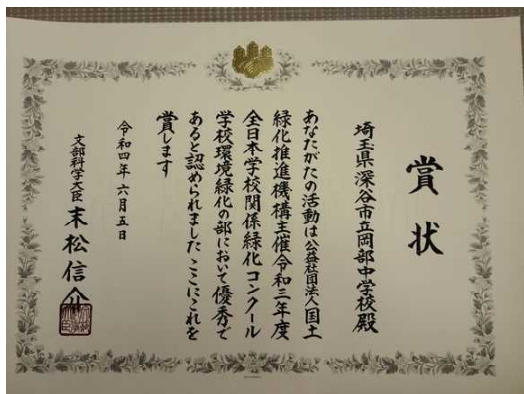 賞状
埼玉県深谷市立岡部中学校殿
あなたがたの活動は公益社団法人国土
緑化推進機構主催令和三年度
全日本学校関係緑化コンクール
学校環境緑化の部において優秀で
あると認められましたここにこれを
賞します
令和四年六月五日
文部科学大臣 末松信介